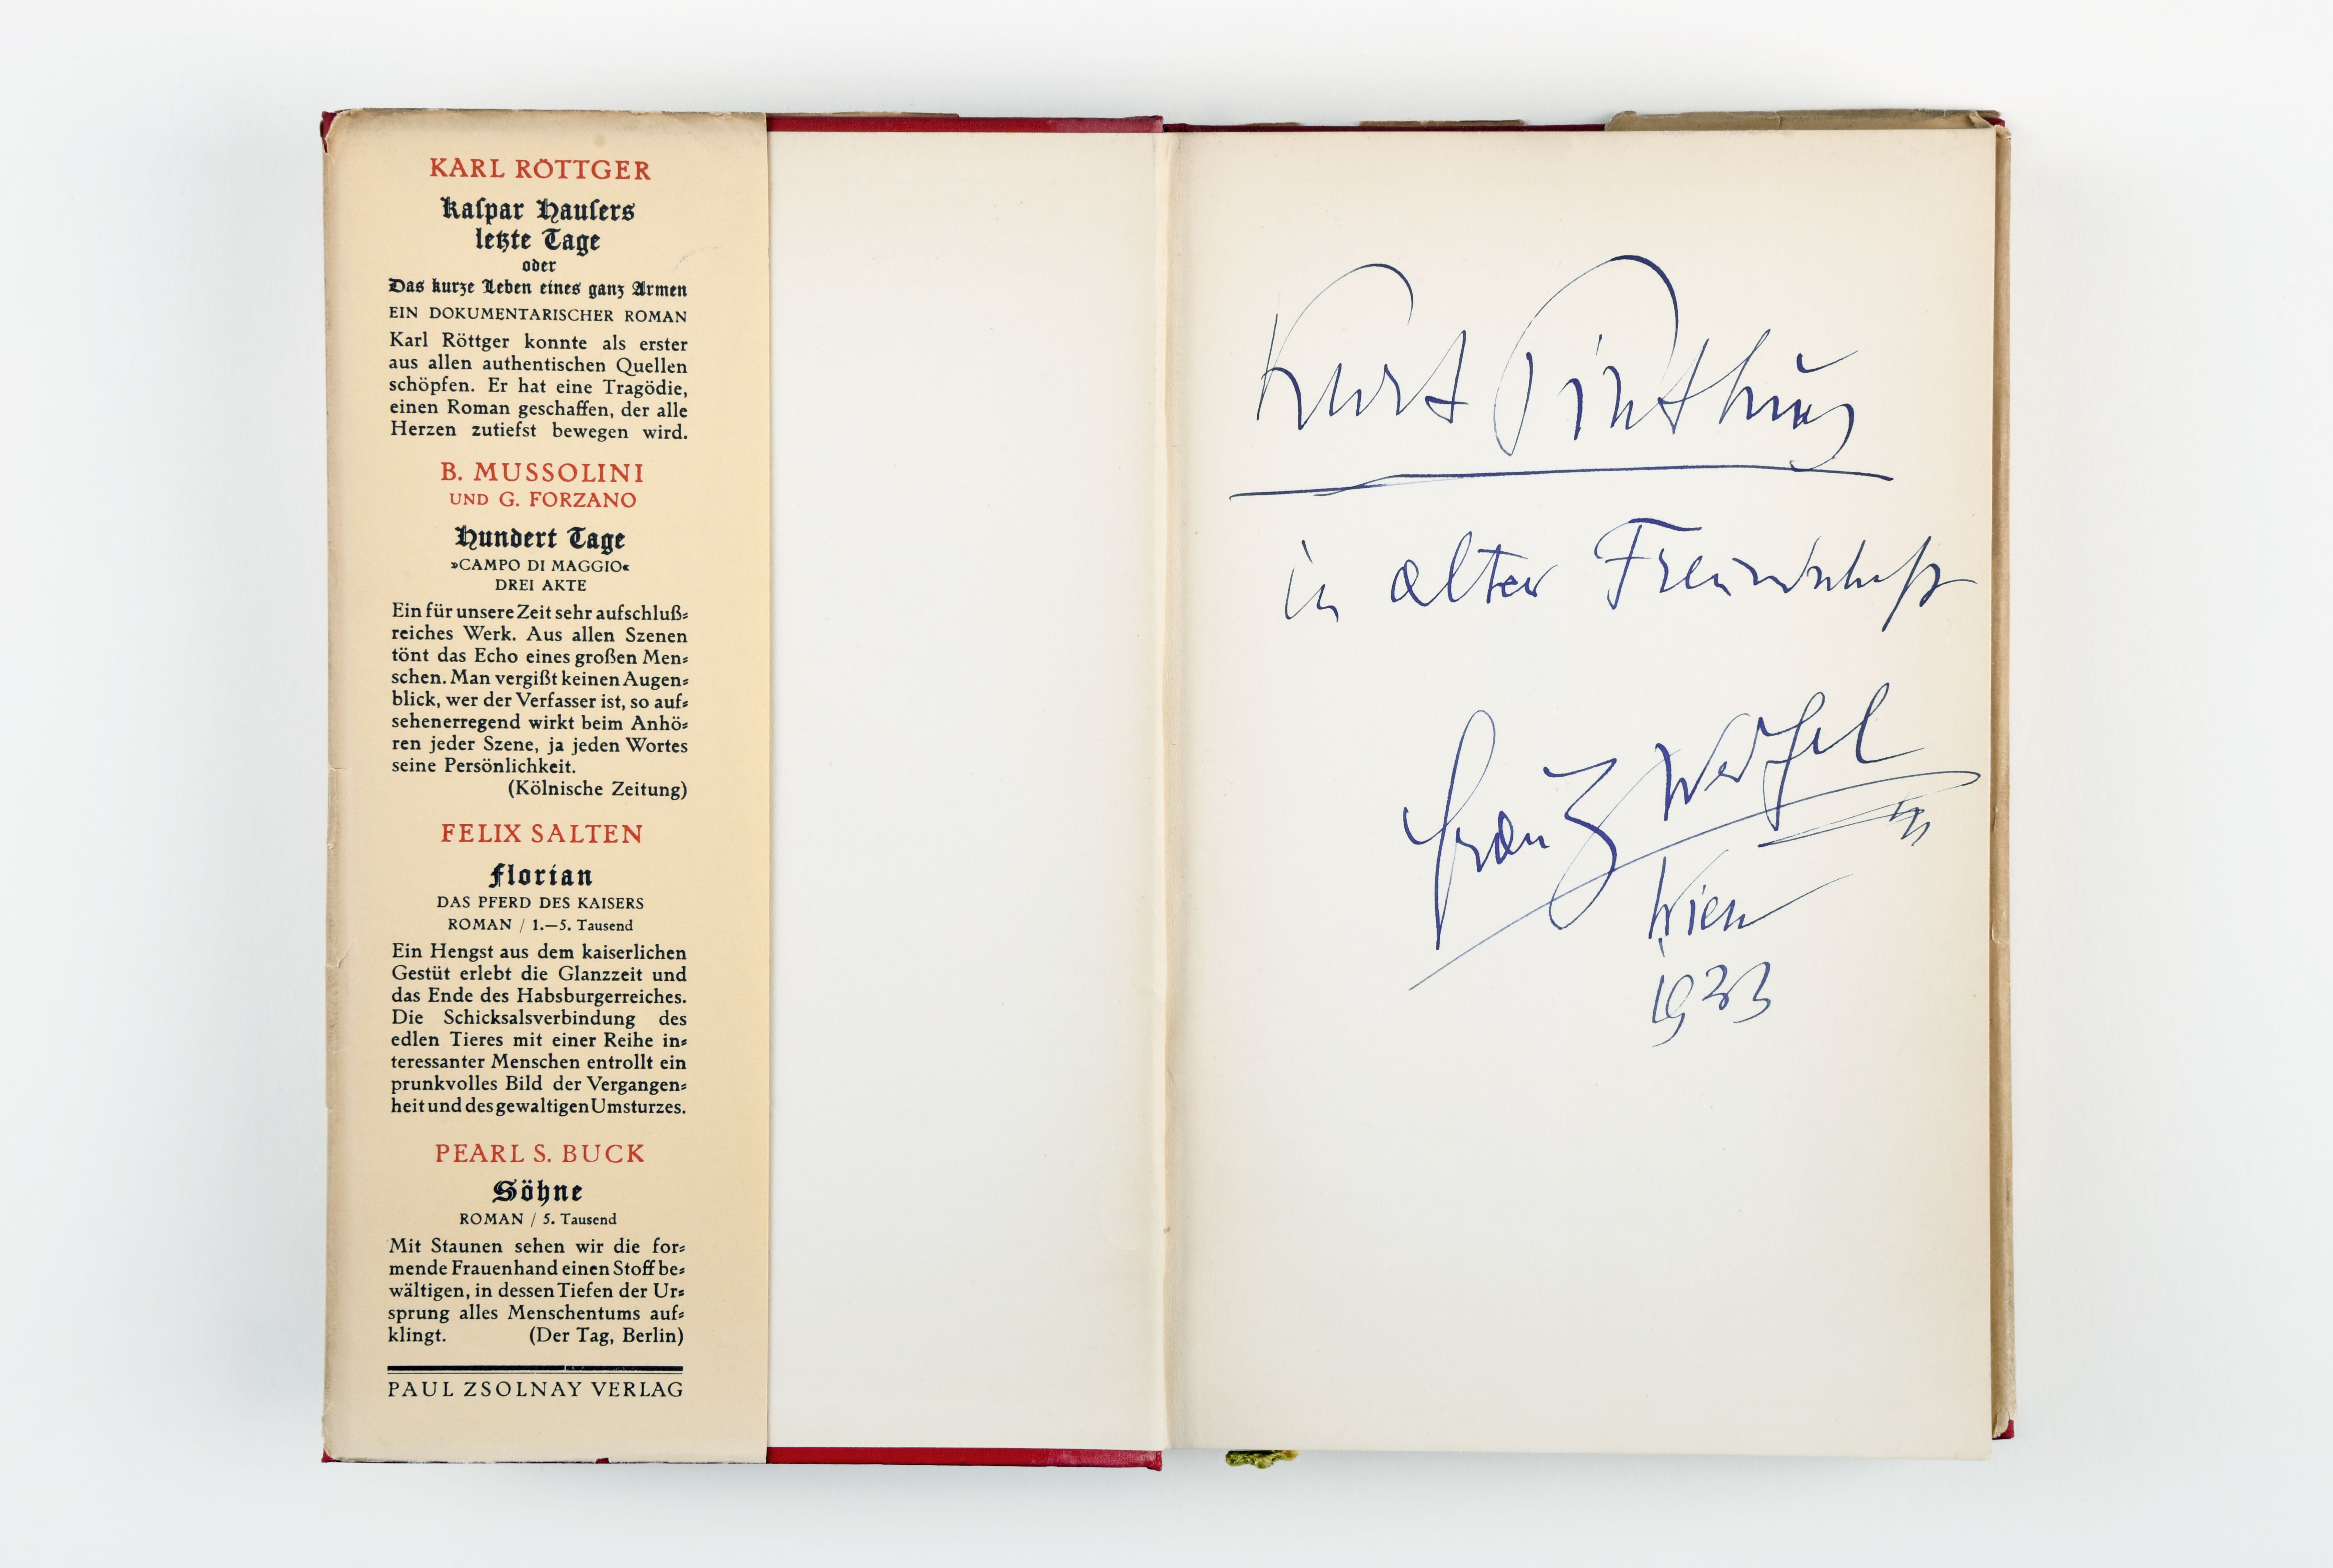 KARL RÖTTGER
Kaſpar Hauſers
letzte Tage
oder
Das kurze Leben eines ganz Armen
EIN DOKUMENTARISCHER ROMAN
Karl Röttger konnte als erster
aus allen authentischen Quellen
schöpfen. Er hat eine Tragödie,
einen Roman geschaffen, der alle
Herzen zutiefst bewegen wird.
B. MUSSOLINI
UND G. FORZANO
Hundert Tage
»CAMPO DI MAGGIO«
DREI AKTE
Ein für unsere Zeit sehr aufschluß-
reiches Werk. Aus allen Szenen
tönt das Echo eines großen Men-
schen. Man vergißt keinen Augen-
blick, wer der Verfasser ist, so auf-
sehenerregend wirkt beim Anhö-
ren jeder Szene, ja jeden Wortes
seine Persönlichkeit.
(Kölnische Zeitung)
FELIX SALTEN
Florian
DAS PFERD DES KAISERS
ROMAN / 1.—5. Tausend
Ein Hengst aus dem kaiserlichen
Gestüt erlebt die Glanzzeit und
das Ende des Habsburgerreiches.
Die Schicksalsverbindung des
edlen Tieres mit einer Reihe in-
teressanter Menschen entrollt ein
prunkvolles Bild der Vergangen-
heit und des gewaltigen Umsturzes.
PEARL S. BUCK
Söhne
ROMAN / 5. Tausend
Mit Staunen sehen wir die for-
mende Frauenhand einen Stoff be-
wältigen, in dessen Tiefen der Ur-
sprung alles Menschentums auf-
klingt. (Der Tag, Berlin)
PAUL ZSOLNAY VERLAG
Kurt Pinthus
in alter Freundschaft
Franz Werfel
Wien
1933